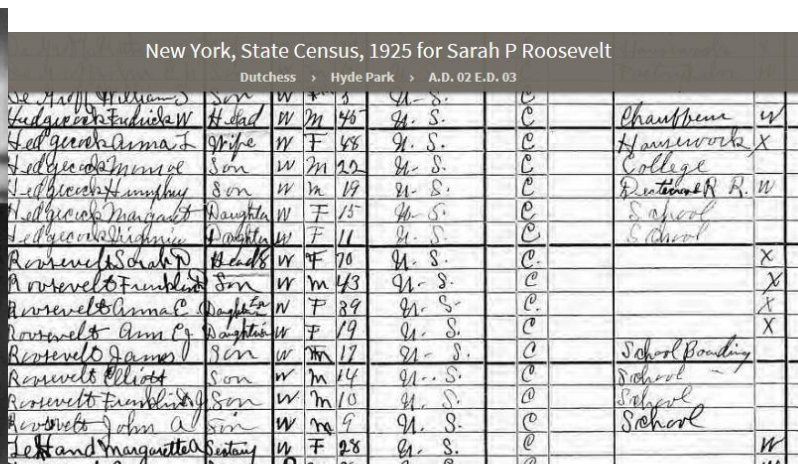 New York, State Census, 1925 for Sarah P Roosevelt
Dutchess › Hyde Park › A.D. 02 E.D. 03
De Groff William S Son W 3 U. S. C
Hedgecock Fredrick W Head W M 45 U. S. C Chauffeur W
Hedgecock Anna L Wife W F 48 U. S. C Housework X
Hedgecock Monroe Son W M 22 U. S. C College
Hedgecock Humphry Son W M 19 U. S. C R R. W
Hedgecock Margaret Daughter W F 15 U. S. C School
Hedgecock Virginia Daughter W F 11 U. S. C School
Roosevelt Sarah D Head W F 70 U. S. C. X
Roosevelt Franklin D Son W M 43 U. S. C X
Roosevelt Anna E Daughter W F 39 U. S. C. X
Roosevelt Ann E Daughter W F 19 U. S. C X
Roosevelt James Son W M 17 U. S. C School Boarding
Roosevelt Elliott Son W M 14 U. S. C School
Roosevelt Franklin D J Son W M 10 U. S. C School
Roosevelt John A Son W M 9 U. S. C School
LeHand Margarette A W F 28 U. S. C W